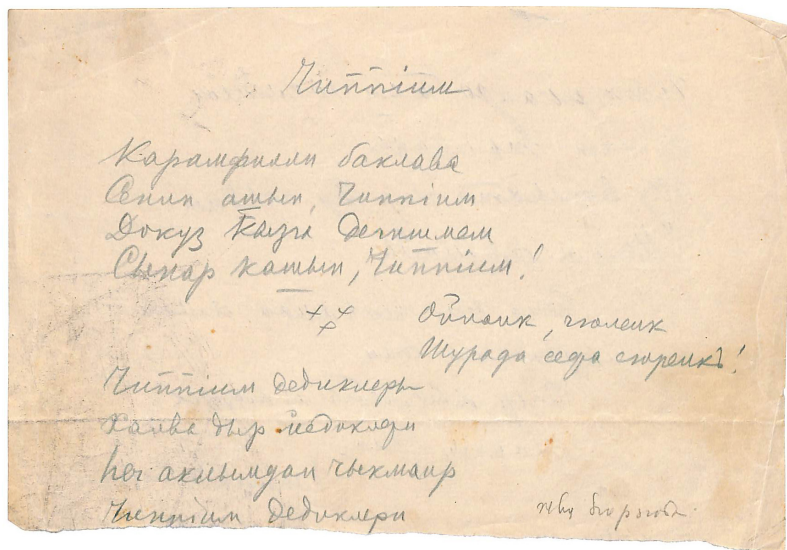 Чиппіим
Карамфилли баклава
Сенин ашын, Чиппіим
Докуз казы дегишмем
Сынар кашын, Чиппіим!
Ойноик, гюлеик
Шурада сефа сюреикъ!
Чиппіим дедиклеры
Халва дыр иедиклери
һег аклымдан чыкмаир
Чиппіим дедиклери